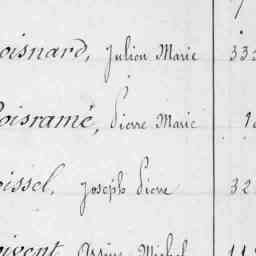 oisnard, Julien Marie 33
oisramé, Pierre Marie 1
oissel, Joseph Pierre 32